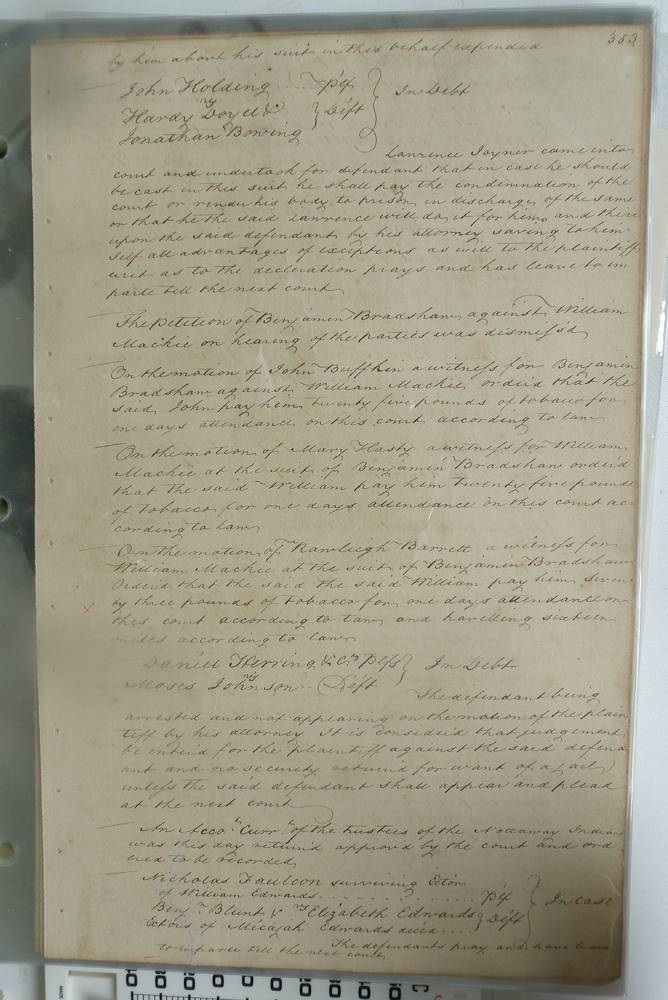 353
by him about his suit in this behalf expended
John Holding ..... Plf } In Debt
vs
Hardy Doyel & } Deft
Jonathan Bowing
Lawrence Joyner came into
court and undertook for defendant that in case he should
be cast in this suit he shall pay the condemnation of the
court or render his body to prison in discharge of the same
or that he the said Lawrence will do it for him, and there
upon the said defendant by his attorney saving to him
self all advantages of exceptions as well to the plaintiffs
writ as to the decleration prays and has leave to im
parle till the next court
The Petition of Benjamin Bradshaw against William
Mackie on hearing of the parties was dismiss'd
On the motion of John Buffkin a witness for Benjamin
Bradshaw against William Mackie, order'd that the
said John pay him twenty five pounds of tobacco for
one days attendance on this court according to law
On the motion of Mary Hasty a witness for William
Mackie at the suit of Benjamin Bradshaw order'd
that the said William pay him twenty five pounds
of tobacco for one days attendance on this court ac
cording to law
On the motion of Rawleigh Barrett a witness for
William Mackie at the suit of Benjamin Bradshaw
Order'd that the said the said William pay him seven
ty three pounds of tobacco for one days attendance on
this court according to law and travelling sixteen
miles according to law
Daniel Herring & Co. Plfs } In Debt
vs
Moses Johnson .. Deft
The defendant being
arrested and not appearing on the motion of the plain
tiff by his attorney It is consider'd that judgement
be enter'd for the plaintiff against the said defend
ant and no security return'd for want of a Jail
unless the said defendant shall appear and plead
at the next court
An Accot. Currt. of the trustees of the Nottaway Indian
was this day return'd approv'd by the court and ord
ered to be recorded
Nicholas Faulcon surviving Exor.
of William Edwards .......... Plf } In case
vs
Benjn. Blunt & Elizabeth Edwards } Deft
Extors of Micajah Edwards decd ...
The defendants pray and have leave
to imparle till the next court